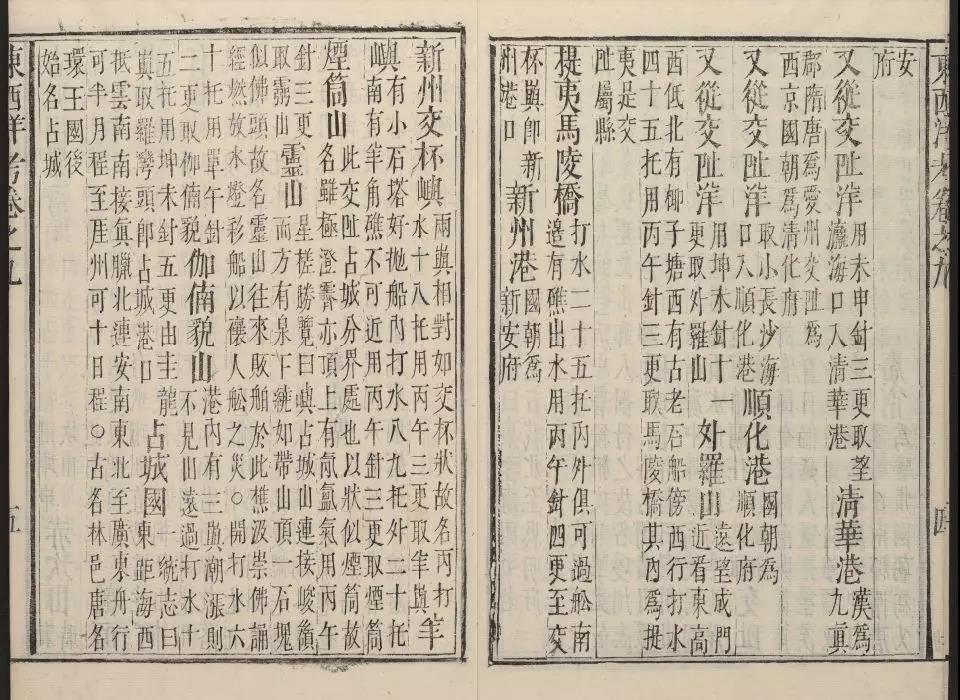 東西洋考卷之九 四
安
府
又從交阯洋 用未申針三更取望
瀛海口入清華港
清華港 漢爲
九眞
郡隋唐爲愛州交阯爲
西京國朝爲清化府
又從交阯洋 取小長沙海
口入順化港
順化港 國朝爲
順化府
又從交阯洋 用坤未針十一
更取外羅山
外羅山 遠望成門
近看東高
西低北有椰子塘西有古老石船傍西行打水
四十五托用丙午針三更取馬陵橋其內爲提
夷是交
阯屬縣
提夷馬陵橋 打水二十五托內外俱可過船南
邊有礁出水用丙午針四更至交
杯嶼即新
州港口
新州港 國朝爲
新安府
新州交杯嶼 兩嶼相對如交杯狀故名丙打
水十八托用丙午三更取羊嶼
羊嶼 有小石塔好拋船內打水八九托外二十托
南有羊角礁不可近用丙午針三更取煙筒
煙筒山 此交阯占城分界處也以狀似煙筒故
名雖極澄霽亦頂上有氤氳氣用丙午
針三更
取靈山
靈山 星槎勝覽曰與占城山連接峻嶺
而方有泉下繞如帶山頂一石塊
似佛頭故名靈山往來販舶於此樵汲崇佛誦
經燃放水燈彩船以禳人船之災○開打水六
十托用單午針
二更取伽㑲貌
伽㑲貌山 港內有三嶼潮漲則
不見山遠過打水十
五托用坤未針五更由圭龍
嶼取羅灣頭即占城港口
占城國 一統志曰
東距海西
抵雲南南接眞臘北連安南東北至廣東舟行
可半月程至厓州可十日程○古名林邑唐名
環王國後
始名占城
東西洋考卷之九 五